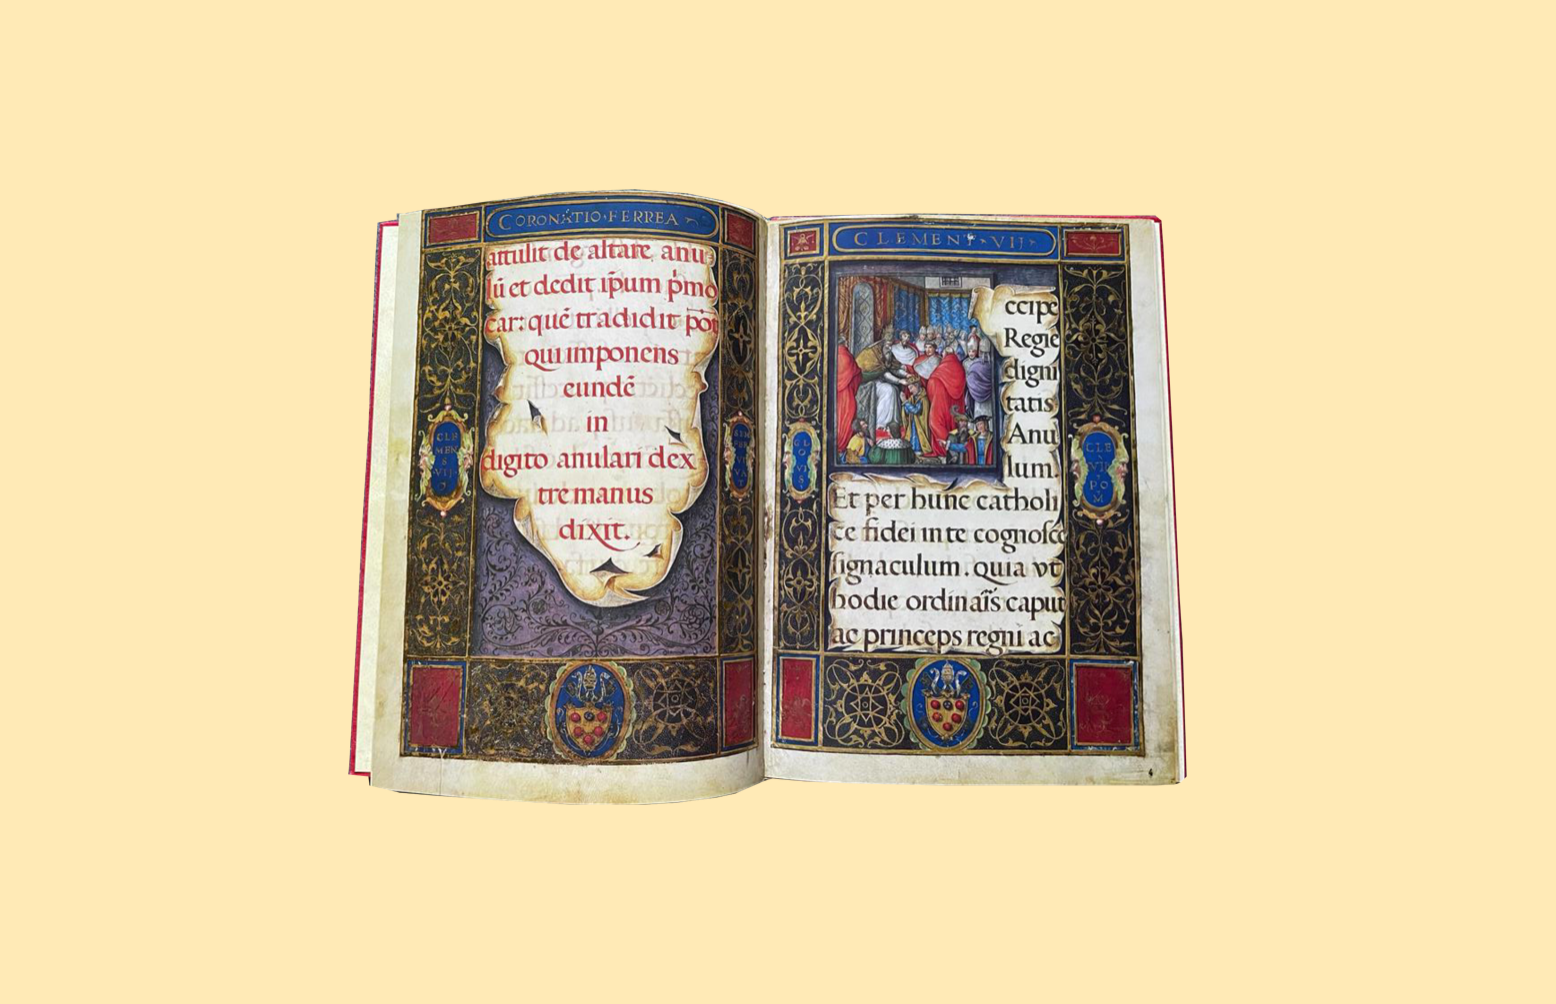 CORONATIO·FERREA
attulit de altare anu
lū et dedit ip̄um p̄mo
car: quē tradidit pōt
qui imponens
eundē
in
digito anulari dex
tre manus
dixit.
CLE
MEN
S
VII
CLEMENT·VII
ccipe
Regie
digni
tatis
Anu
lum.
Et per hunc catholi
ce fidei in te cognosce
signaculum. quia vt
hodie ordinar̄is caput
ac princeps regni ac
CLE
VII
PO
M